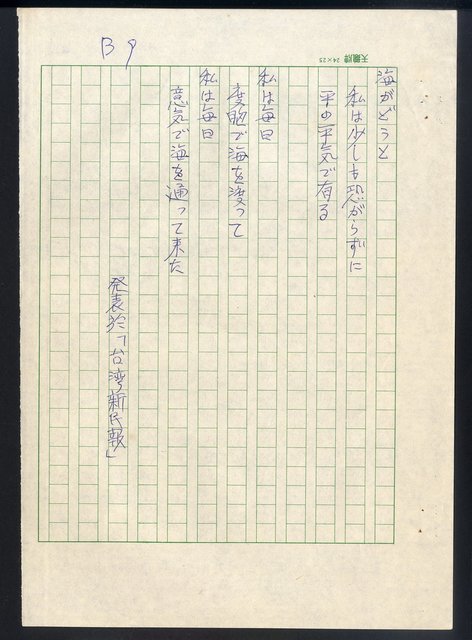 B9
天龍牌 24×25
海がどうと
私は少しも恐がらずに
平の平気で有る
私は毎日
度胞で海を渡って
私は毎日
意気で海を通って来た
発表於「台湾新民報」